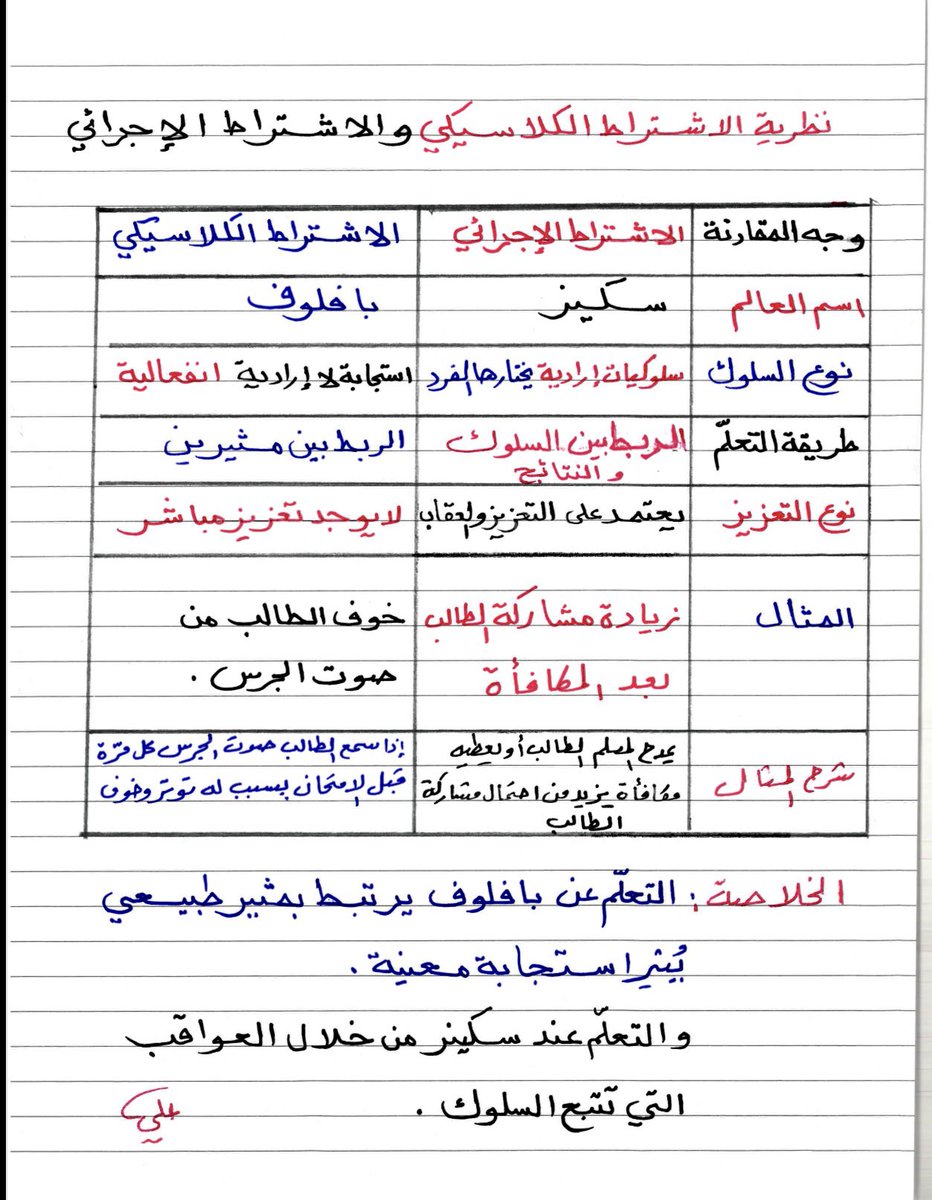 نظرية الاشتراط الكلاسيكي والاشتراط الإجرائي
وجه المقارنة الاشتراط الإجرائي الاشتراط الكلاسيكي
اسم العالم سكينز بافلوف
نوع السلوك سلوكيات إرادية يختارها الفرد استجابة لا إرادية انفعالية
طريقة التعلّم الربط بين السلوك الربط بين مثيرين
والنتائج
نوع التعزيز يعتمد على التعزيز والعقاب لا يوجد تعزيز مباشر
المثال زيادة مشاركة الطالب خوف الطالب من
بعد المكافأة صوت الجرس.
شرح المثال يمدح المعلم الطالب أو يعطيه إذا سمع الطالب صوت الجرس كل فترة
مكافأة يزيد من احتمال مشاركة قبل الامتحان يسبب له توتر وخوف
الطالب
الخلاصة: التعلّم عن بافلوف يرتبط بمثير طبيعي
يُثير استجابة معينة.
والتعلّم عند سكينز من خلال العواقب
التي تتبع السلوك.
علي